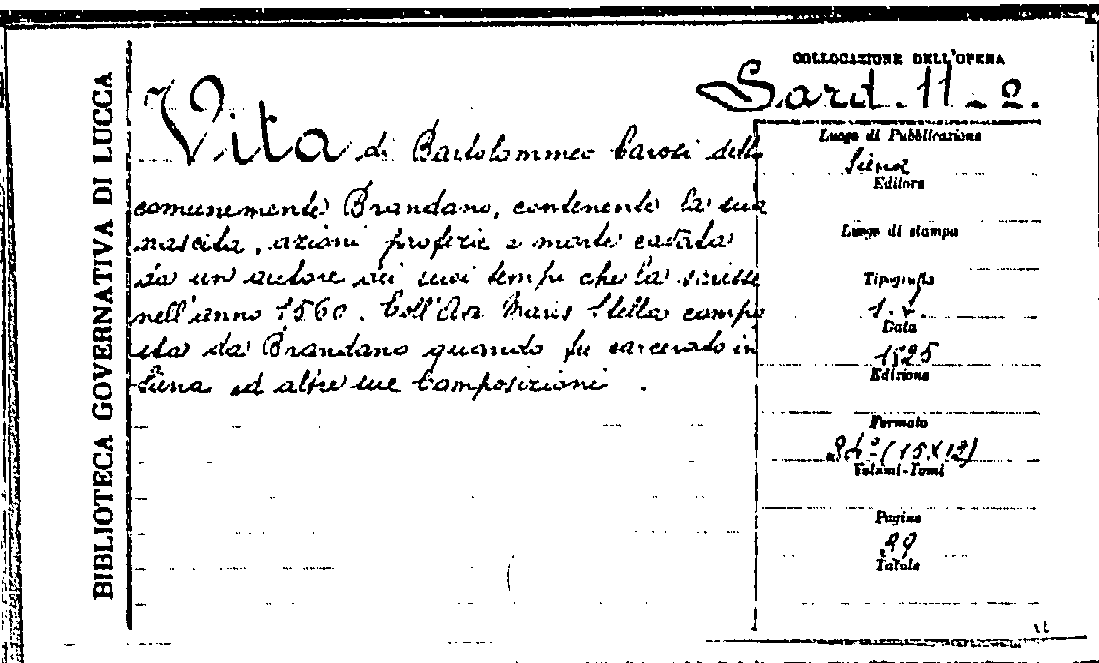 BIBLIOTECA GOVERNATIVA DI LUCCA
COLLOCAZIONE DELL'OPERA
Sard. 11 - 2.
Vita di Bartolommeo Carosi dello
comunemente Brandano, contenente la sua
nascita, azioni profezie e morte cavata
da un autore dei suoi tempi che la scrisse
nell'anno 1560. Coll'Ave Maris Stella compo
sta da Brandano quando fu carcerato in
Siena ed altre sue Composizioni.
Luogo di Pubblicazione
Siena
Editore
Luogo di stampa
Tipografia
Data
Edizione
Formato
24° (15X12)
Volumi-Tomi
Pagine
29
Tavole